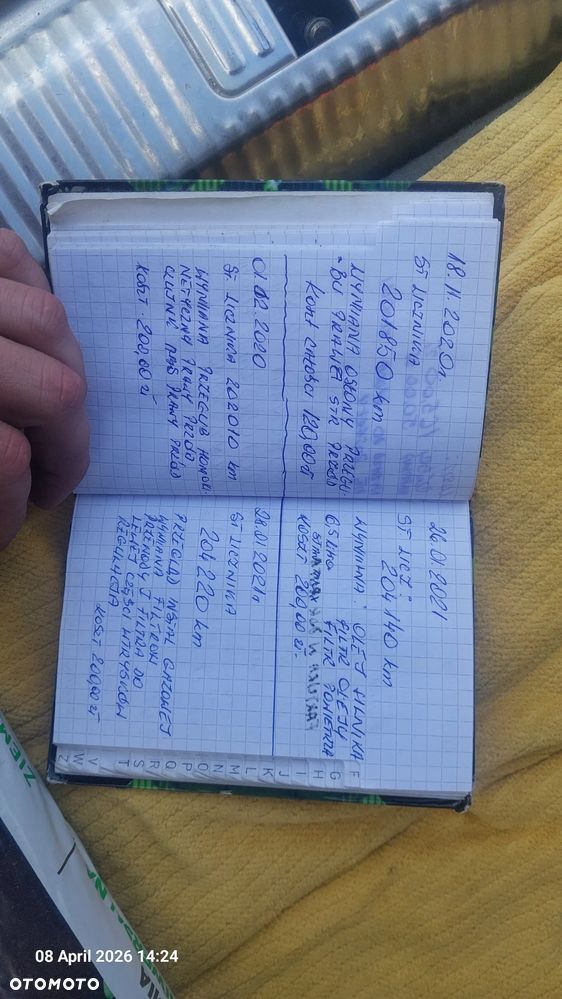 18.11.2020r.
ST LICZNIKA
201850 km
WYMIANA OSŁONY PRZEGU
BU PRAWEJ STR PRZÓD
KOSZT CAŁOŚCI 120,00 zł
01.02.2020
ST LICZNIKA 202010 km
WYMIANA PRZEGUB HOMOKI
NETYCZNA PRAWY PRZÓD
PRAWY PRZÓD
KOSZT 200,00 zł
26.01.2021
ST LICZ:
204140 km
WYMIANA: OLEJ SILNIKA
FILTR OLEJU
FILTR POWIETRZA
KOSZT 200,00 zł
28.01.2021r
ST LICZNIKA
204220 km
PRZEGLĄD INSTAL GAZOWEJ
WYMIANA FILTRÓW
REGULACJA
KOSZT 200,00 zł
F
G
H
I
J
K
L
M
N
O
P
Q
R
S
T
V
W
Z
ZIEM
08 April 2026 14:24
OTOMOTO